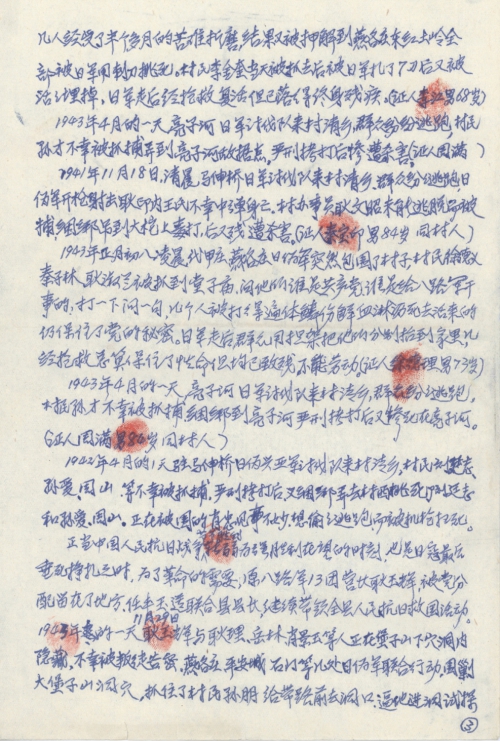 几人经受了半个多月的苦难折磨,结果又被押解到燕各庄东红土岭全
部被日军用刺刀挑死。村民李全奎当天被抓去后被日军扎了7刀后又被
活埋掉,日军走后经抢救复活但已落得终身残疾。(证人李江男68岁)
1943年4月的一天亮子河日军讨伐队来村清乡,群众纷纷逃跑,村民
孙才不幸被抓捕弄到亮子河敌据点,严刑拷打后惨遭杀害。(证人周满)
1941年11月18日,清晨,马伸桥日军讨伐队来村清乡,群众纷纷逃跑,日
伪军开枪射击耿印内王氏不幸中弹身亡。村办事员耿文昭未能逃脱而被
捕,捆绑吊到大枪上毒打,后又残遭杀害。(证人 男84岁 同村人)
1943年正月初八凌晨,伐甲庄、燕各庄日伪军突然包围了村子,村民
秦子林、耿 被抓到堂子面,问他们谁是共产党,谁是给八路军干
事的,打一下问一句,几个人被打了等遍体 伤鲜血淋沥死去活来的
仍保住了党的秘密。日军走后群众用担架把他们分别抬到家里,
经抢救总算保住了性命但均已致残不能劳动(证人 理 男73岁)
1943年4月的一天,亮子河日军讨伐队来村清乡,群众纷纷逃跑,
村民孙才不幸被抓捕捆绑到亮子河严刑拷打后又惨死在亮子河。
(证人周满男84岁 同村人)
1942年4月的1天驻马伸桥日伪兴亚军讨伐队来村清乡,村民刘廷志
孙爱、周山 等不幸被抓捕,严刑拷打后又捆绑弄去村西挑死,刘廷志
和孙爱、周山。正在被围的肖忠见事不妙,想偷逃跑,而被机枪扫死。
正当中国人民抗日战争 胜利在望的时刻,也是日寇最后
垂死挣扎之时,为了革命的需要,原八路军13团营长耿玉辉,被党分
配留在了地方,任丰玉遵联合县县长,继续带领全县人民抗日救国活动。
11月29日
1943年寒的一天,耿玉辉与耿理、岳林、肖景云等人正在堡子山下穴洞内
隐藏,不幸被叛徒告密,燕各庄、平安城、石门等几处日伪军联合行动,围剿
大堡子山洞穴,抓住了村民孙明给带路前去洞口,逼他进洞试探
③